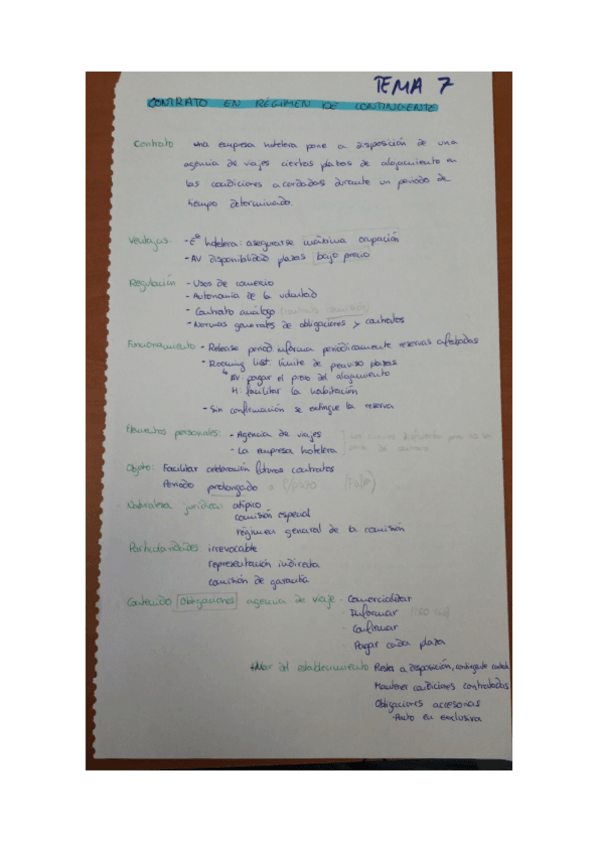 TEMA 7
CONTRATO EN RÉGIMEN DE CONTINGENTE
Contrato una empresa hotelera pone a disposición de una
agencia de viajes ciertas plazas de alojamiento en
las condiciones acordadas durante un periodo de
tiempo determinado.
Ventajas: - Eª hotelera: asegurarse máxima ocupación
- AV disponibilidad plazas bajo precio
Regulación - Usos de comercio
- Autonomía de la voluntad
- Contrato análogo
- Normas generales de obligaciones y contratos
Funcionamiento - Release period. informa periódicamente reservas efectuadas
- Rooming list. límite de preaviso plazas
AV: pagar el precio del alojamiento
H: facilitar la habitación
- Sin confirmación se extingue la reserva
Elementos personales: - Agencia de viajes
- La empresa hotelera
Objeto: Facilitar celebración futuros contratos
Periodo prolongado
Naturaleza jurídica: atípico
comisión especial
régimen general de la comisión
Particularidades irrevocable
representación indirecta
comisión de garantía
Contenido Obligaciones agencia de viaje - Comercializar
- Informar
- Confirmar
- Pagar cada plaza
del establecimiento Puesta a disposición,
Mantener condiciones contratadas
Obligaciones accesorias
- Pacto en exclusiva